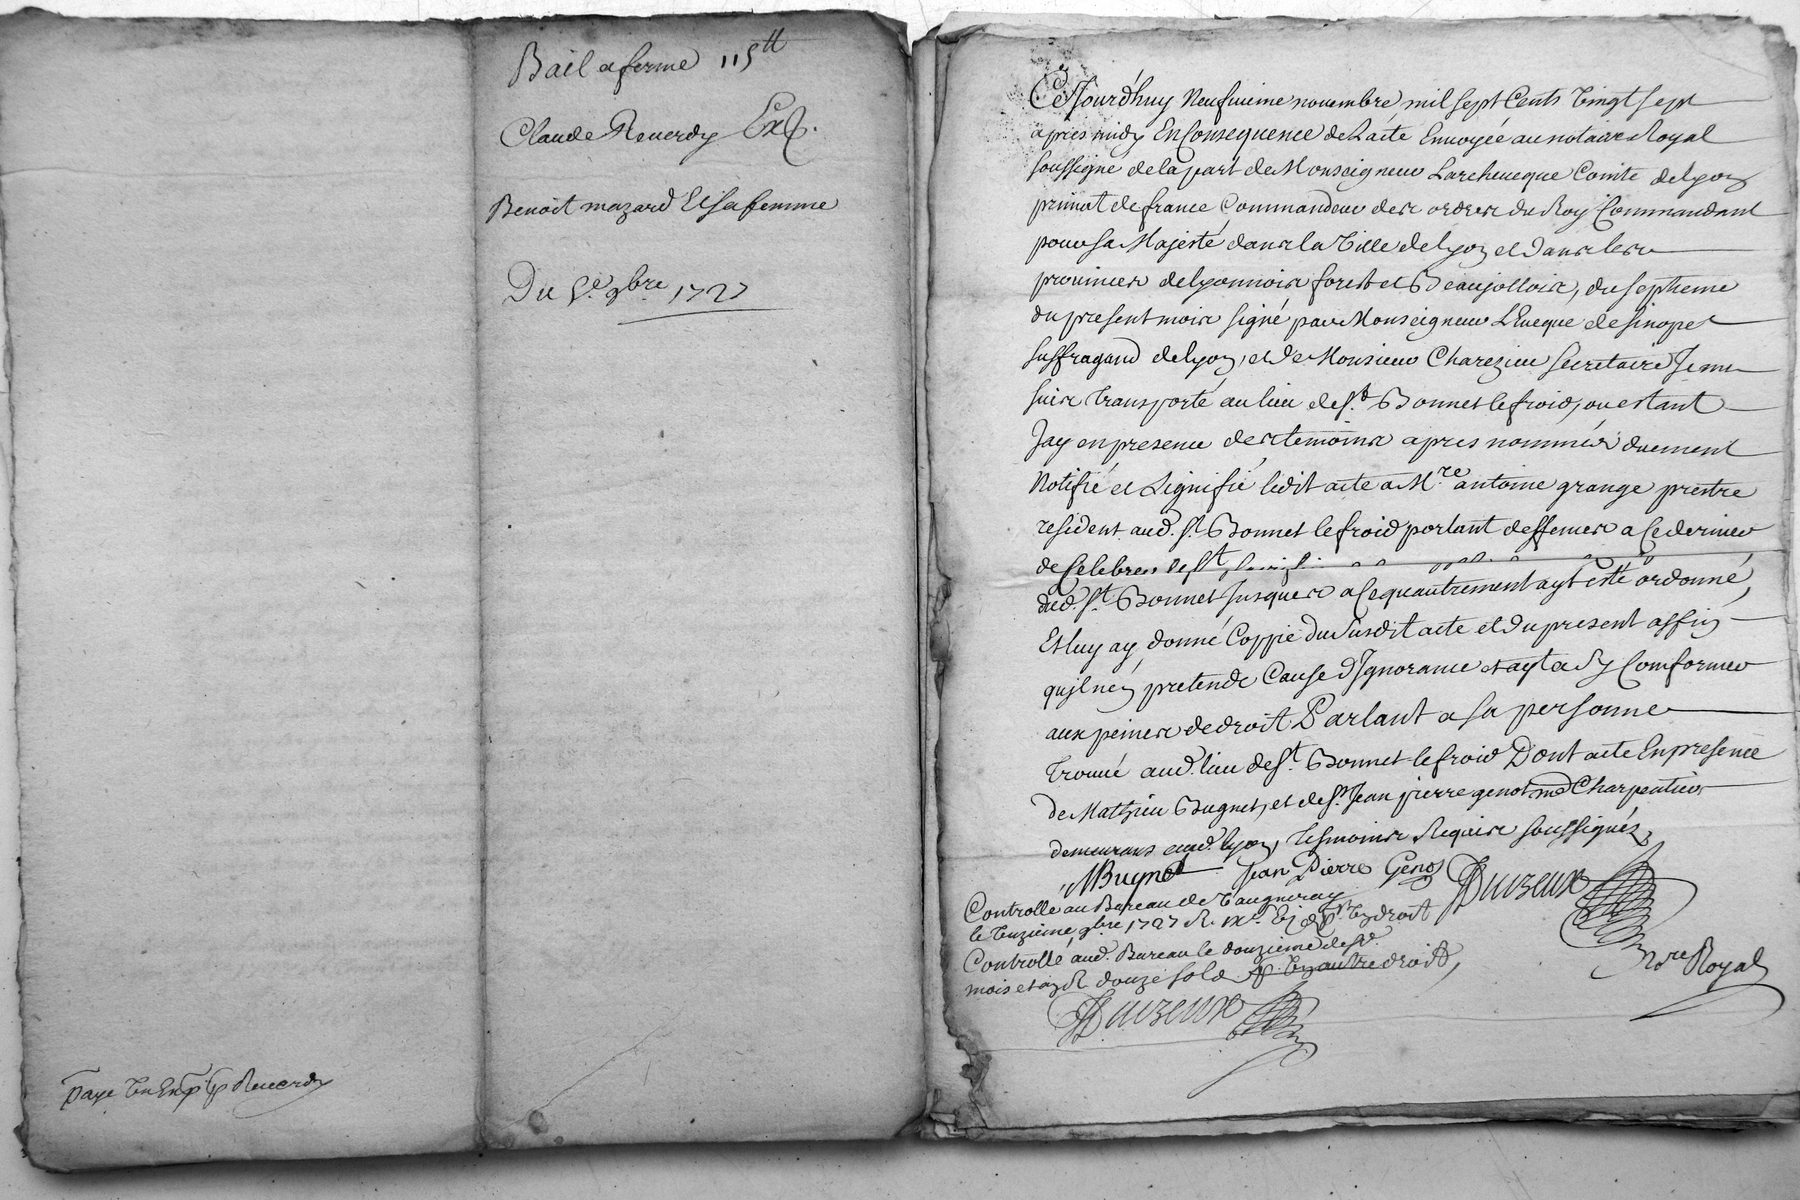 Bail a ferme 115tt
Claude Reverdy Exp.
Benoit mazard Et sa femme
Du 5e. 9bre. 1727
paye Reverdy
Ce Jourd'huy Neufvieme novembre mil sept Cents vingt sept
apres midy En Consequence de L'acte Envoyée au notaire Royal
soussigné de la part de Monseigneur Larcheveque Comte de lyon
primat de france Commandeur des ordres du Roy Commandant
pour sa Majesté dans la Ville de lyon et dans les
provinces de lyonnois forest et Beaujollois, du septieme
du present mois signé par Monseigneur L'Eveque de sinope
suffragand de lyon, et de Monsieur Charezieu secretaire Je me
suis transporté au lieu de st. Bonnet le froid, ou estant
Jay en presence des temoins apres nommés duement
Notifié et signifié ledit acte a Mre antoine grange prestre
resident aud. st. Bonnet le froid portant deffences a Ce dernier
de Celebrer
dud. st. Bonnet Jusques a Ce quautrement ayt esté ordonné,
Et luy ay donné Coppie du susdit acte et du present affin
quil n'en pretende Cause d'Ignorance et ayt a s'y Conformer
aux peines de droit Parlant a sa personne
trouvé aud. lieu de st. Bonnet le froid Dont acte En presence
de Mathieu Bugnet, et de sr. Jean pierre genot md Charpentier
demeurans aud. lyon, tesmoins Requis soussignés,
MBugnet Jean Pierre Genot Duizeux
Controllé au Bureau de Vaugneray
le unzieme 9bre 1727 R. droit
Controllé aud. Bureau le douzieme desd.
mois et an R douze sols autre droit,
nre Royal
Duizeux